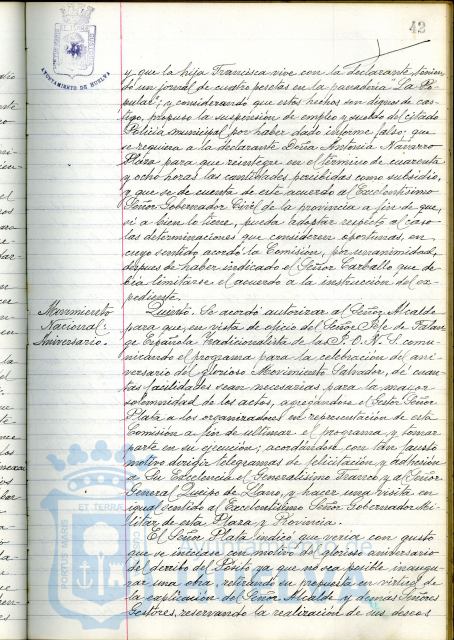 42
AYUNTAMIENTO DE HUELVA
y que la hija Francisca vive con la declarante, tenien
do un jornal de cuatro pesetas en la panadería "La Po-
pular"; y considerando que estos hechos son dignos de cas-
tigo, propuso la suspensión de empleo y sueldo del citado
Policía municipal por haber dado informe falso; que
se requiera a la declarante Doña Antonia Navarro
Plaza para que reintegre en el término de cuarenta
y ocho horas las cantidades percibidas como subsidio,
y que se de cuenta de este acuerdo al Excelentísimo
Señor Gobernador Civil de la provincia a fin de que,
si a bien lo tiene, pueda adoptar respecto al caso
las determinaciones que consideren oportunas, en
cuyo sentido acordó la Comisión, por unanimidad,
después de haber indicado el Señor Carballo que de-
bía limitarse el acuerdo a la instrucción del ex-
pediente.
Movimiento
Nacional:
Aniversario.
Quinto. Se acordó autorizar al Señor Alcalde
para que, en vista de oficio del Señor Jefe de Falan-
ge Española Tradicionalista de las J.O.N.S. comu-
nicando el programa para la celebración del ani-
versario del glorioso Movimiento Salvador, dé cuan-
tas facilidades sean necesarias para la mayor
solemnidad de los actos, agregándose el Gestor Señor
Plata a los organizadores en representación de esta
Comisión a fin de ultimar el programa y tomar
parte en su ejecución; acordándose con tan fausto
motivo dirigir telegramas de felicitación y adhesión
a Su Excelencia el Generalísimo Franco y al Señor
General Queipo de Llano, y hacer una visita en
igual sentido al Excelentísimo Señor Gobernador Mi-
litar de esta Plaza y Provincia.
El Señor Plata indicó que vería con gusto
que se inicien con motivo del glorioso aniversario
del derribo del Pósito ya que no era posible inaugu-
rar una obra, retirando su propuesta en virtud de
la explicación del Señor Alcalde y demás Señores
Gestores, reservando la realización de sus deseos
PORTUS MARIS ET TERRAE CUSTODIA